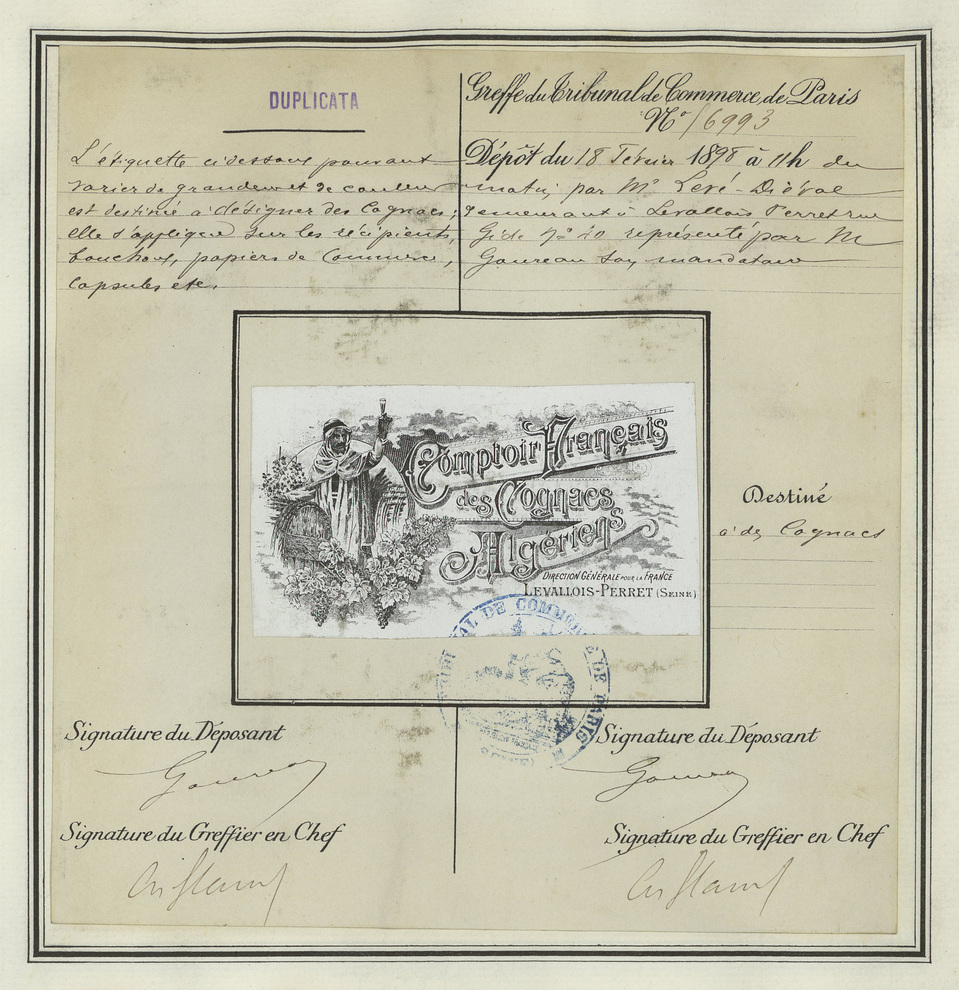 DUPLICATA
L'étiquette cidessous pouvant
varier de grandeur et de couleur
est destinée à désigner des Cognacs;
elle s'applique sur les récipients,
bouchons, papiers de Commerce,
capsules etc.
Greffe du Tribunal de Commerce de Paris
N° 16993
Dépôt du 18 Février 1898 à 11h du
matin, par Mr Levé-Diéval
demeurant à Levallois Perret rue
Gide no 40 représenté par M
Goureau son mandataire
Comptoir Français
des Cognacs
Algériens
DIRECTION GÉNÉRALE POUR LA FRANCE
LEVALLOIS-PERRET (SEINE)
TRIBUNAL DE COMMERCE DE PARIS
Destiné
à des Cognacs
Signature du Déposant
Goureau
Signature du Greffier en Chef
Signature du Déposant
Goureau
Signature du Greffier en Chef